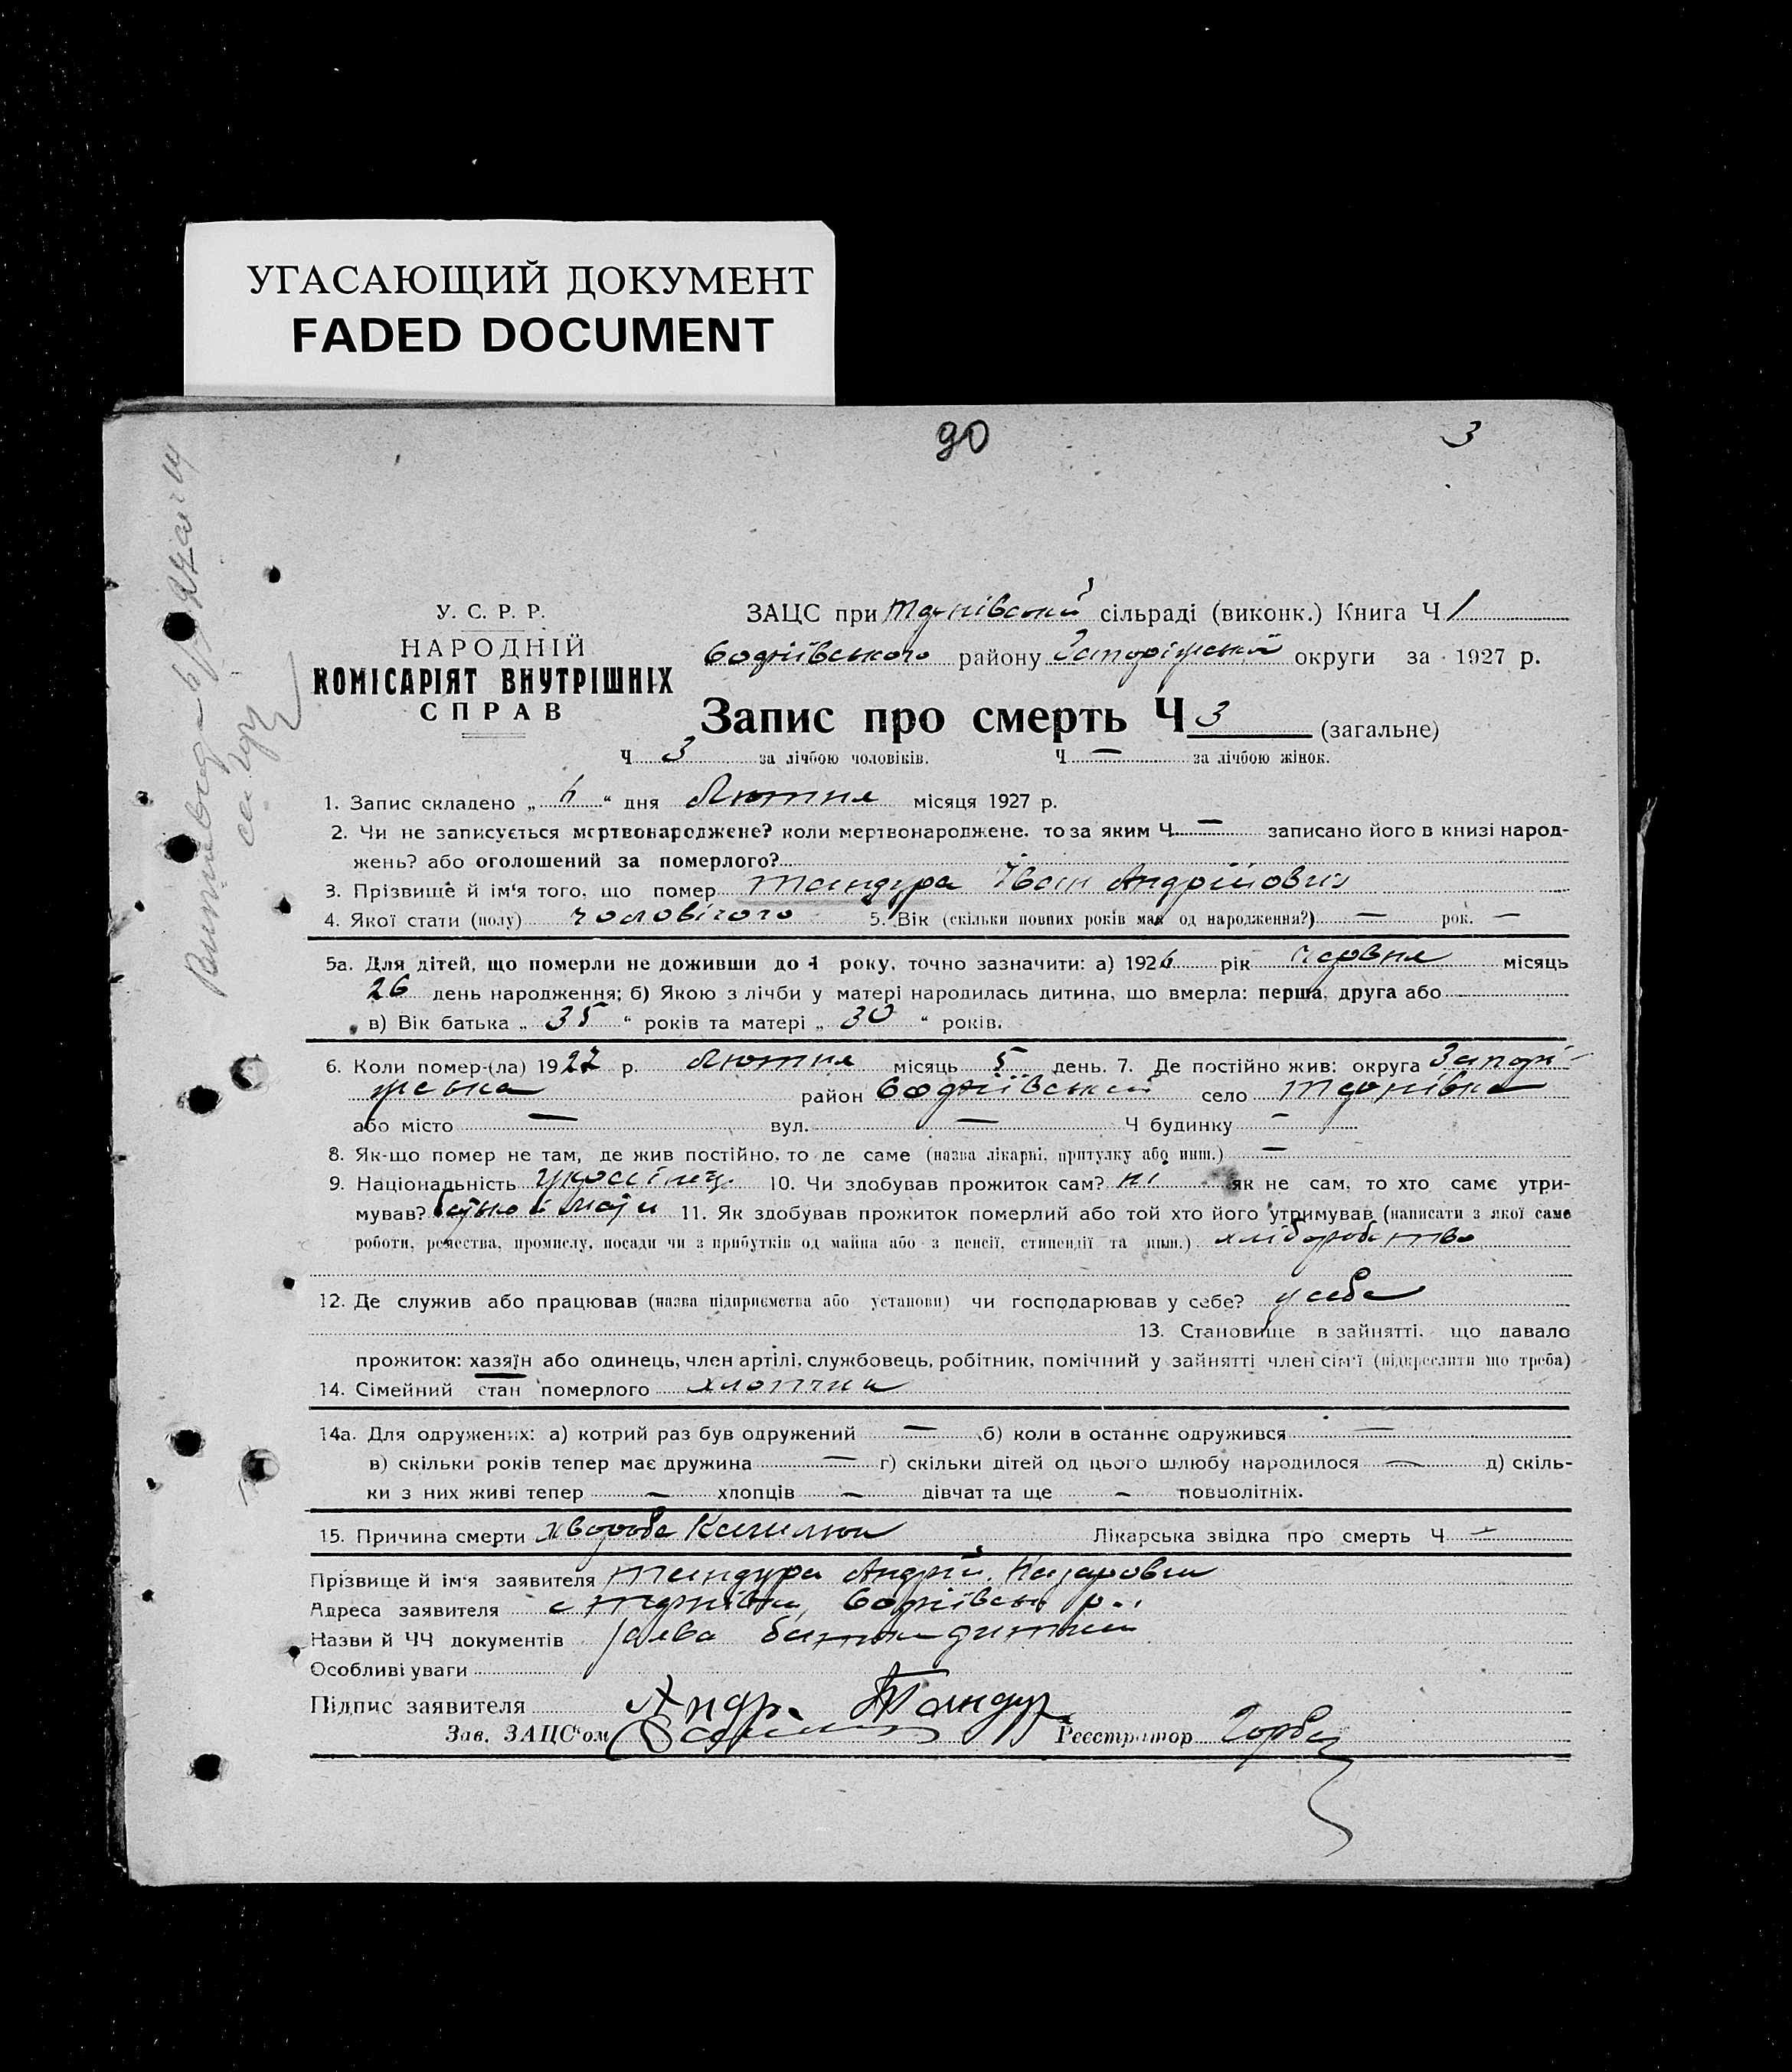 УГАСАЮЩИЙ ДОКУМЕНТ
FADED DOCUMENT
90
3
У. С. Р. Р.
НАРОДНІЙ
КОМІСАРІЯТ ВНУТРІШНІХ
СПРАВ
ЗАЦС при Тернівській сільраді (виконк.) Книга Ч 1
району Запоріжській округи за 1927 р.
Запис про смерть Ч 3 (загальне)
Ч 3 за лічбою чоловіків. Ч — за лічбою жінок.
1. Запис складено „ 6 “ дня Лютня місяця 1927 р.
2. Чи не записується мертвонароджене? коли мертвонароджене, то за яким Ч — записано його в книзі народ-
жень? або оголошений за померлого?
3. Прізвище й ім'я того, що помер Тандура Іван Андрійович
4. Якої стати (полу) чоловічого 5. Вік (скільки повних років має од народження?) — рок. —
5а. Для дітей, що померли не доживши до 1 року, точно зазначити: а) 1926 рік Червня місяць
26 день народження; б) Якою з лічби у матері народилась дитина, що вмерла: перша, друга або
в) Вік батька „ 35 “ років та матері „ 30 “ років.
6. Коли помер-(ла) 1927 р. Лютня місяць 5 день. 7. Де постійно жив: округа Запорі-
жська район село Тернівка
або місто — вул. — Ч будинку —
8. Як-що помер не там, де жив постійно, то де саме (назва лікарні, притулку або инш.) —
9. Національність 10. Чи здобував прожиток сам? ні як не сам, то хто саме утри-
мував? батько і мати 11. Як здобував прожиток померлий або той хто його утримував (написати з якої саме
роботи, ремества, промислу, посади чи з прибутків од майна або з пенсії, стипендії та инш.) хліборобство
12. Де служив або працював (назва підприємства або установи) чи господарював у себе? у себе
13. Становище в зайнятті, що давало
прожиток: хазяїн або одинець, член артілі, службовець, робітник, помічний у зайнятті член сім'ї (підкреслити що треба)
14. Сімейний стан померлого хлопчик
14а. Для одружених: а) котрий раз був одружений — б) коли в останнє одружився —
в) скільки років тепер має дружина — г) скільки дітей од цього шлюбу народилося — д) скіль-
ки з них живі тепер — хлопців — дівчат та ще — повнолітніх.
15. Причина смерти хвороба Кашлюк Лікарська звідка про смерть Ч —
Прізвище й ім'я заявителя Тандура Андрій Назарович
Адреса заявителя с Тернівка
Назви й ЧЧ документів заява батька дитини
Особливі уваги
Підпис заявителя Андр. Тандур
Зав. ЗАЦС'ом Реєстратор Горбa